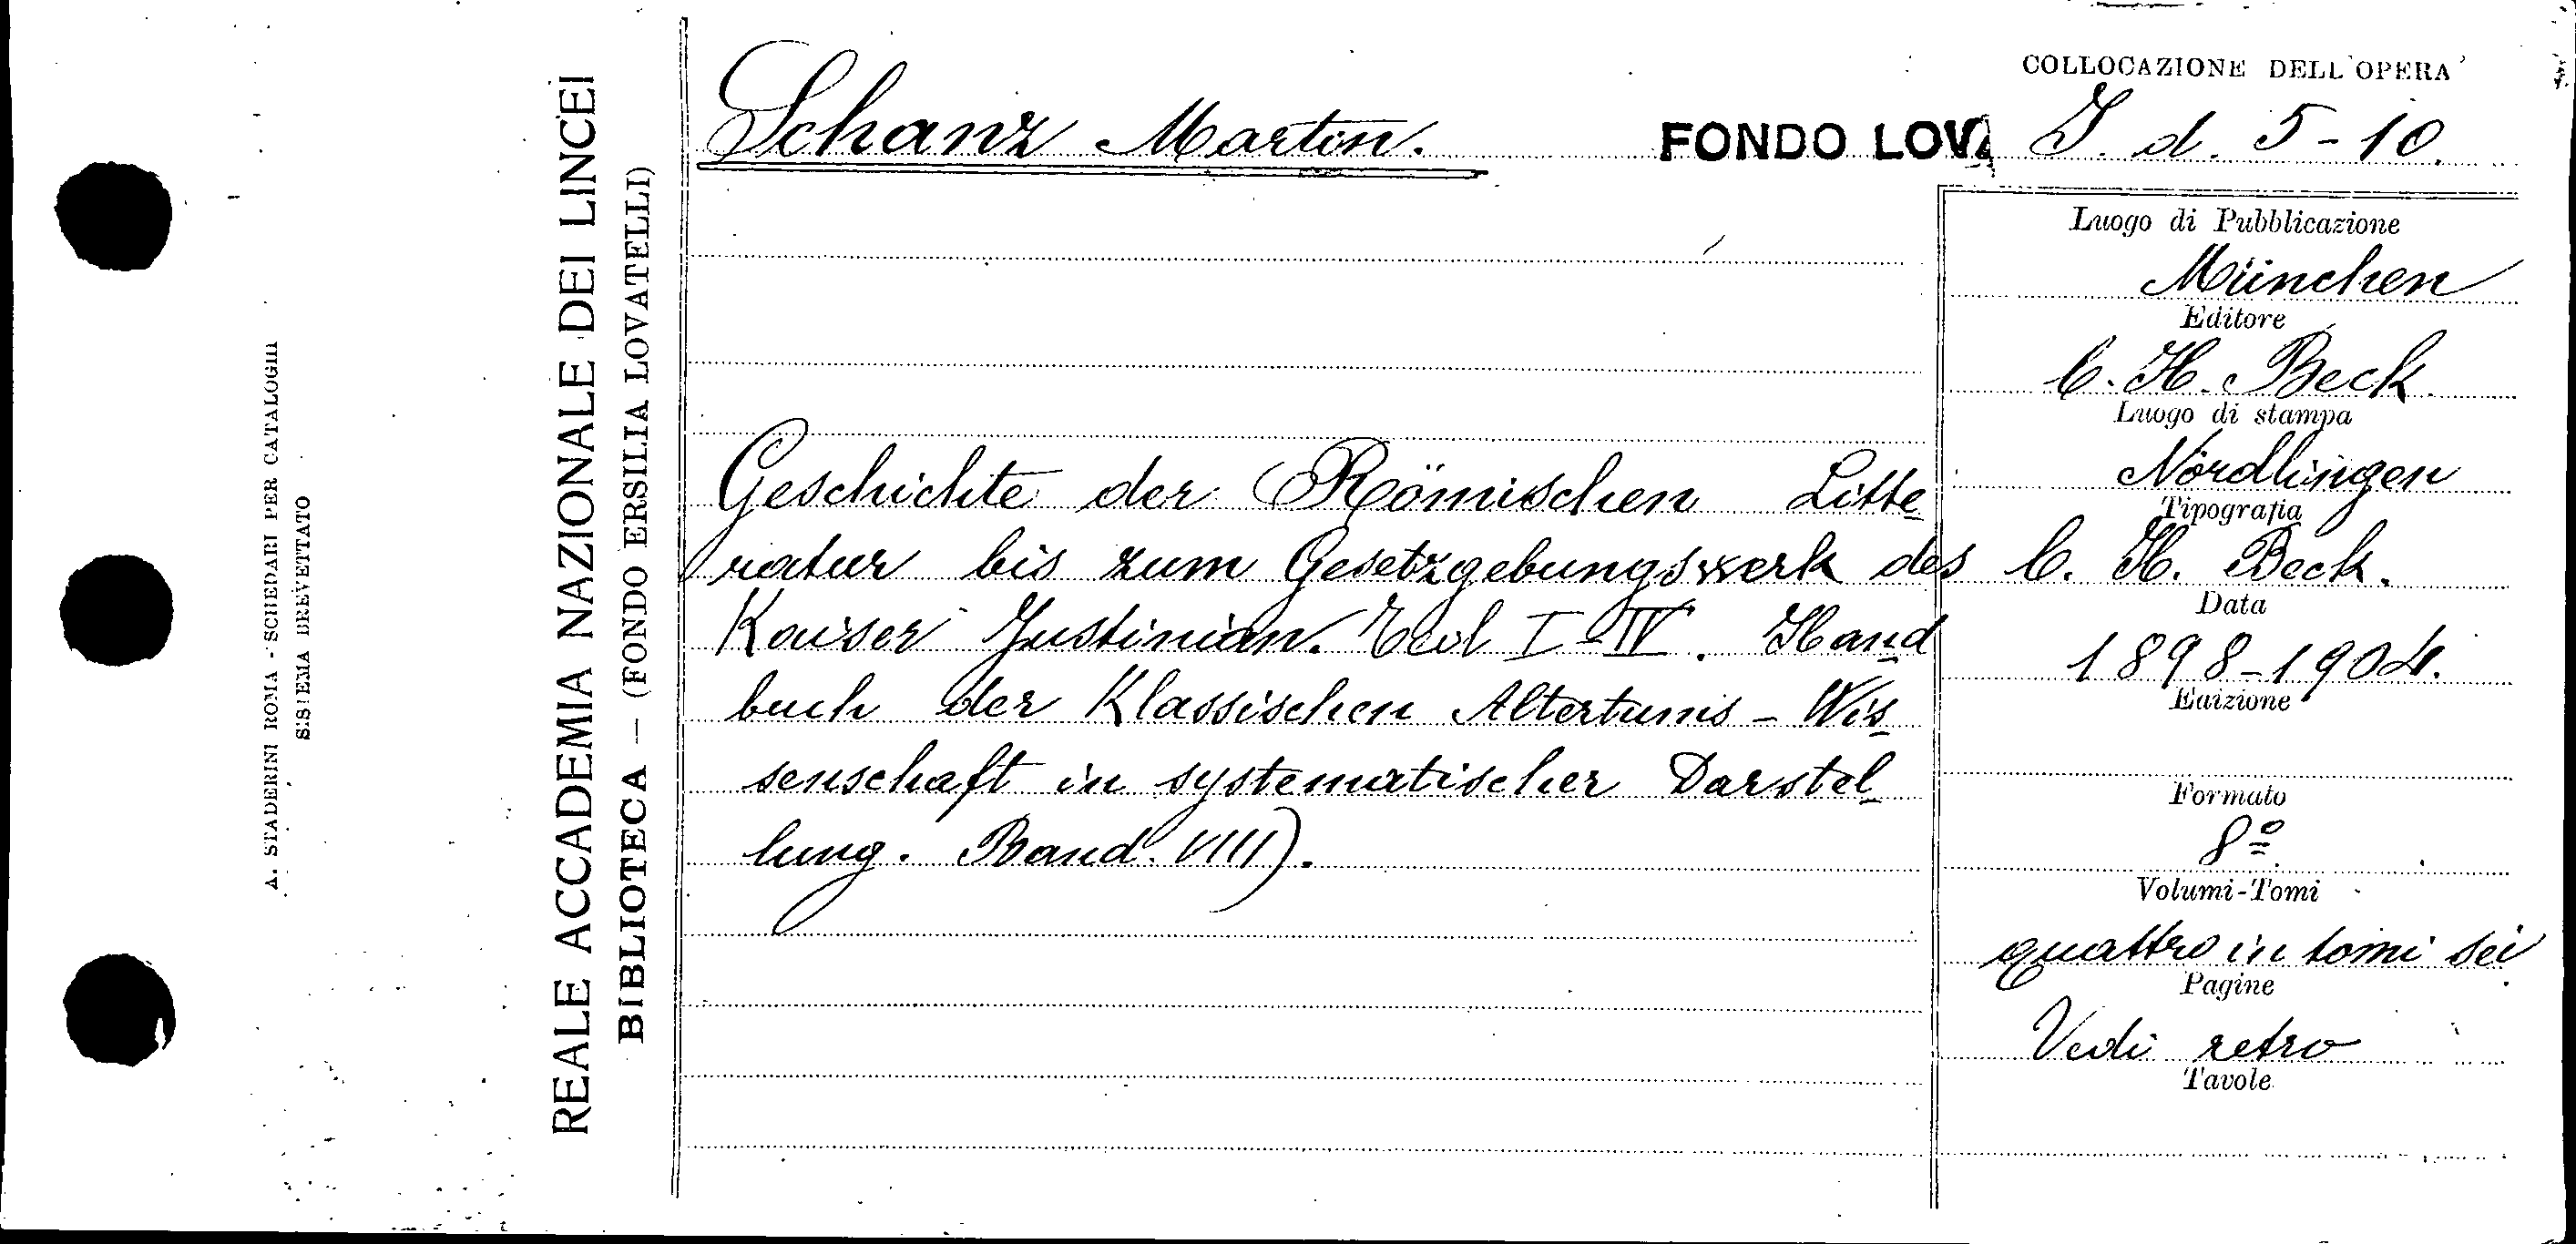 COLLOCAZIONE DELL'OPERA
Schanz Martin. FONDO LOVA I. d. 5-10.
Luogo di Pubblicazione
München
Editore
C. H. Beck
Luogo di stampa
Nördlingen
Tipografia
C. H. Beck.
Data
1898-1904.
Edizione
Formato
8º
Volumi-Tomi
quattro in tomi sei
Pagine
Vedi retro
Tavole
Geschichte der (Römischen Litte
ratur bis zum Gesetzgebungswerk des
Kaiser Justinian. Teil I-IV. Hand
buch der Klassischen Altertums-Wis
senschaft in systematischer Darstel
lung. Band. VIII).
REALE ACCADEMIA NAZIONALE DEI LINCEI
BIBLIOTECA — (FONDO ERSILIA LOVATELLI)
A. STADERINI ROMA - SCHEDARI PER CATALOGHI
SISTEMA BREVETTATO